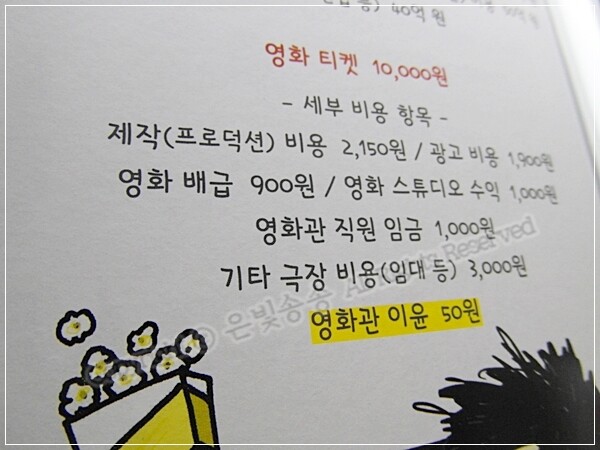 등) 40억 원
영화 티켓 10,000원
- 세부 비용 항목 -
제작(프로덕션) 비용 2,150원 / 광고 비용 1,900원
영화 배급 900원 / 영화 스튜디오 수익 1,000원
영화관 직원 임금 1,000원
기타 극장 비용(임대 등) 3,000원
영화관 이윤 50원
은빛송송 All Rights Reserved